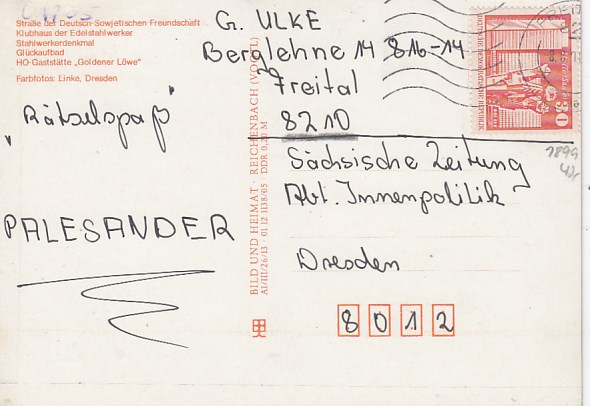 Straße der Deutsch-Sowjetischen Freundschaft
Klubhaus der Edelstahlwerker
Stahlwerkerdenkmal
Glückaufbad
HO-Gaststätte „Goldener Löwe“
Farbfotos: Linke, Dresden
G. ULKE
Berglehne 14 816-14
Freital
8210
„Rätselspaß"
PALESANDER
Sächsische Zeitung
Abt. Innenpolitik
Dresden
8012
BILD UND HEIMAT · REICHENBACH (VOGTL)
A1/III/26/13 · 01 12 1138/05 DDR 0,20 M
DEUTSCHE DEMOKRATISCHE REPUBLIK
10
1899